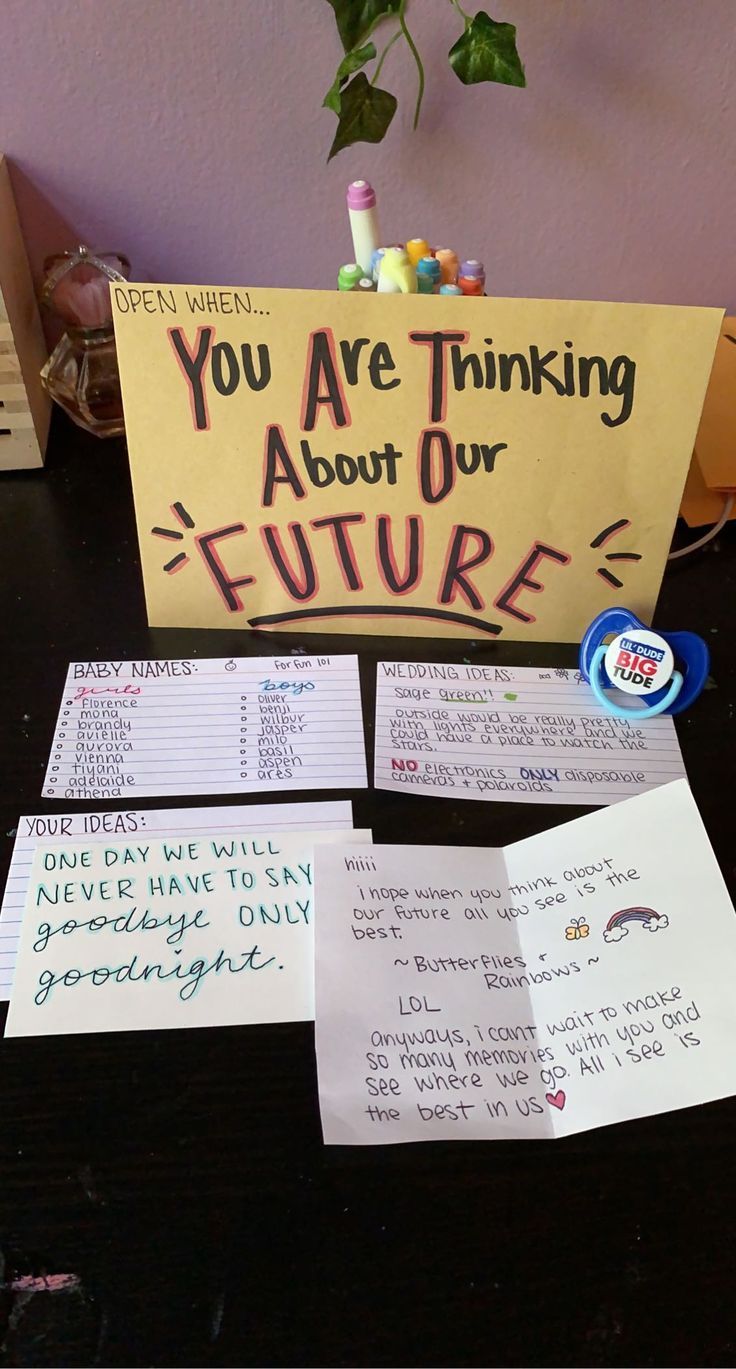 OPEN WHEN...
You Are Thinking
About Our
FUTURE
LIL' DUDE
BIG
TUDE
BABY NAMES: For fun lol
girls
florence
mona
brandy
avielle
aurora
vienna
tiyani
adelaide
athena
boys
oliver
benji
wilbur
jasper
milo
basil
aspen
ares
WEDDING IDEAS:
sage green!!
outside would be really pretty
with lights everywhere and we
could have a place to watch the
stars.
NO electronics ONLY disposable
cameras + polaroids
YOUR IDEAS:
ONE DAY WE WILL
NEVER HAVE TO SAY
goodbye ONLY
goodnight.
hiiii
i hope when you think about
our future all you see is the
best.
~ Butterflies +
Rainbows ~
LOL
anyways, i cant wait to make
so many memories with you and
see where we go. All i see is
the best in us